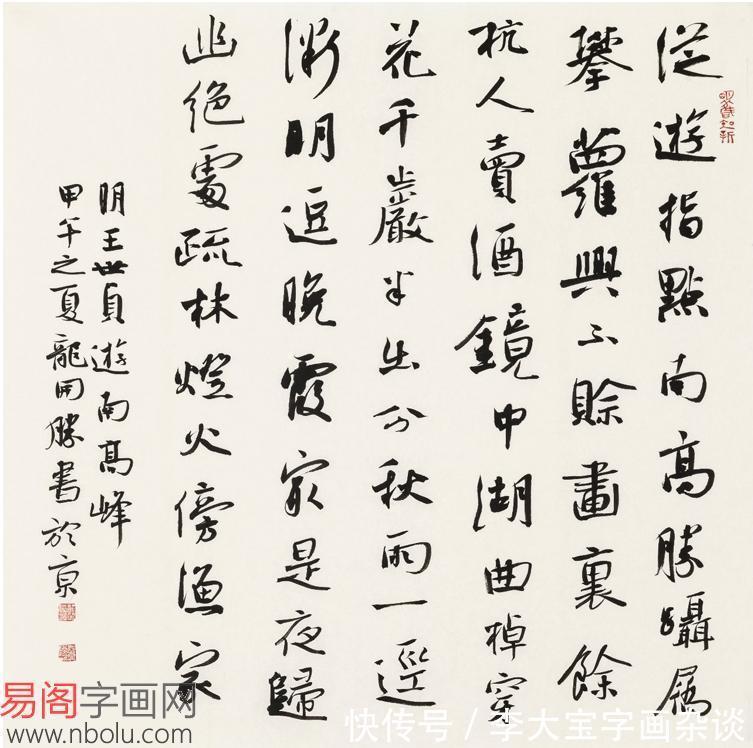 從遊指點南高勝躡屩
攀蘿興不賒畫裏餘
杭人賣酒鏡中湖曲棹穿
花千巖半出分秋雨一逕
漸明逗晚霞最是夜歸
幽絕處疏林燈火傍漁家
明王世貞遊南高峰
甲午之夏龍開勝書於京
易阁字画网
www.nbolu.com
快传号/李大宝字画杂谈